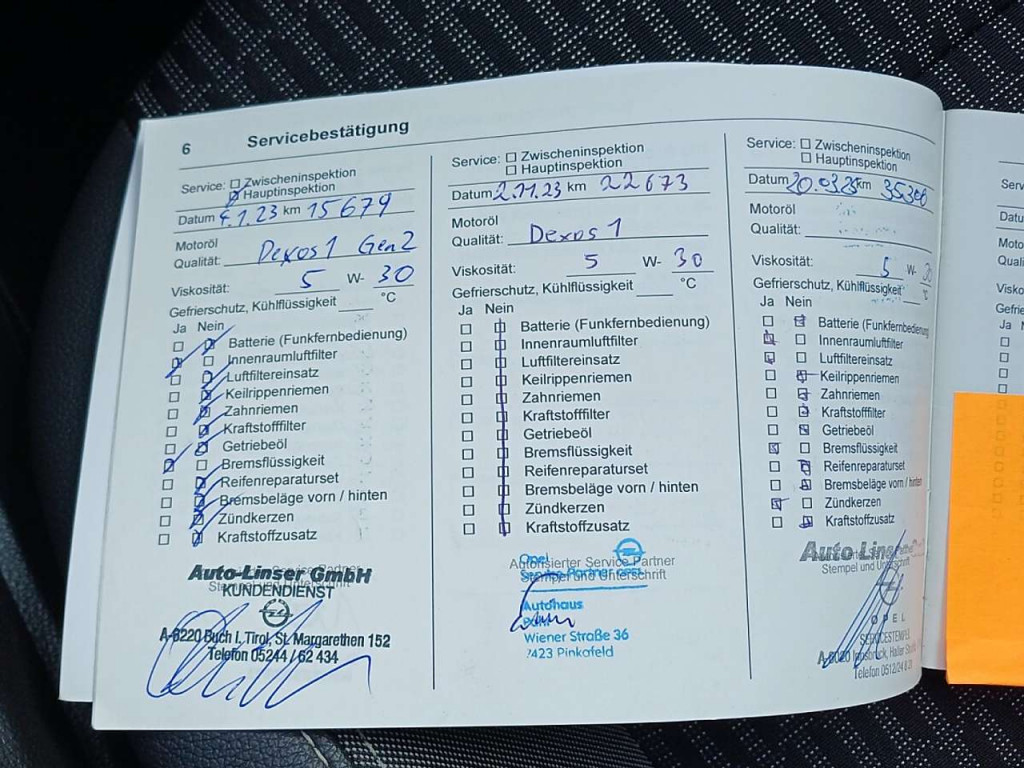 6 Servicebestätigung
Service: Zwischeninspektion
Hauptinspektion
Datum 4.1.23 km 15679
Motoröl
Qualität: Dexos 1 Gen2
Viskosität: 5 W- 30
Gefrierschutz, Kühlflüssigkeit °C
Ja Nein
Batterie (Funkfernbedienung)
Innenraumluftfilter
Luftfiltereinsatz
Keilrippenriemen
Zahnriemen
Kraftstofffilter
Getriebeöl
Bremsflüssigkeit
Reifenreparaturset
Bremsbeläge vorn / hinten
Zündkerzen
Kraftstoffzusatz
Auto-Linser GmbH
Stempel und Unterschrift
KUNDENDIENST
A-6220 Buch i. Tirol, St. Margarethen 152
Telefon 05244 / 62 434
Service: Zwischeninspektion
Hauptinspektion
Datum 2.11.23 km 22673
Motoröl
Qualität: Dexos 1
Viskosität: 5 W- 30
Gefrierschutz, Kühlflüssigkeit °C
Ja Nein
Batterie (Funkfernbedienung)
Innenraumluftfilter
Luftfiltereinsatz
Keilrippenriemen
Zahnriemen
Kraftstofffilter
Getriebeöl
Bremsflüssigkeit
Reifenreparaturset
Bremsbeläge vorn / hinten
Zündkerzen
Kraftstoffzusatz
Opel
Autorisierter Service Partner
Service Partner OPEL
Stempel und Unterschrift
Autohaus
Wiener Straße 36
7423 Pinkafeld
Service: Zwischeninspektion
Hauptinspektion
Datum 20.03.25 km 35300
Motoröl
Qualität:
Viskosität: 5 W- 30
Gefrierschutz, Kühlflüssigkeit °C
Ja Nein
Batterie (Funkfernbedienung
Innenraumluftfilter
Luftfiltereinsatz
Keilrippenriemen
Zahnriemen
Kraftstofffilter
Getriebeöl
Bremsflüssigkeit
Reifenreparaturset
Bremsbeläge vorn / hinten
Zündkerzen
Kraftstoffzusatz
Auto Linser
Stempel und Unterschrift
OPEL
A-6020 Innsbruck, Haller
Telefon 0512/24